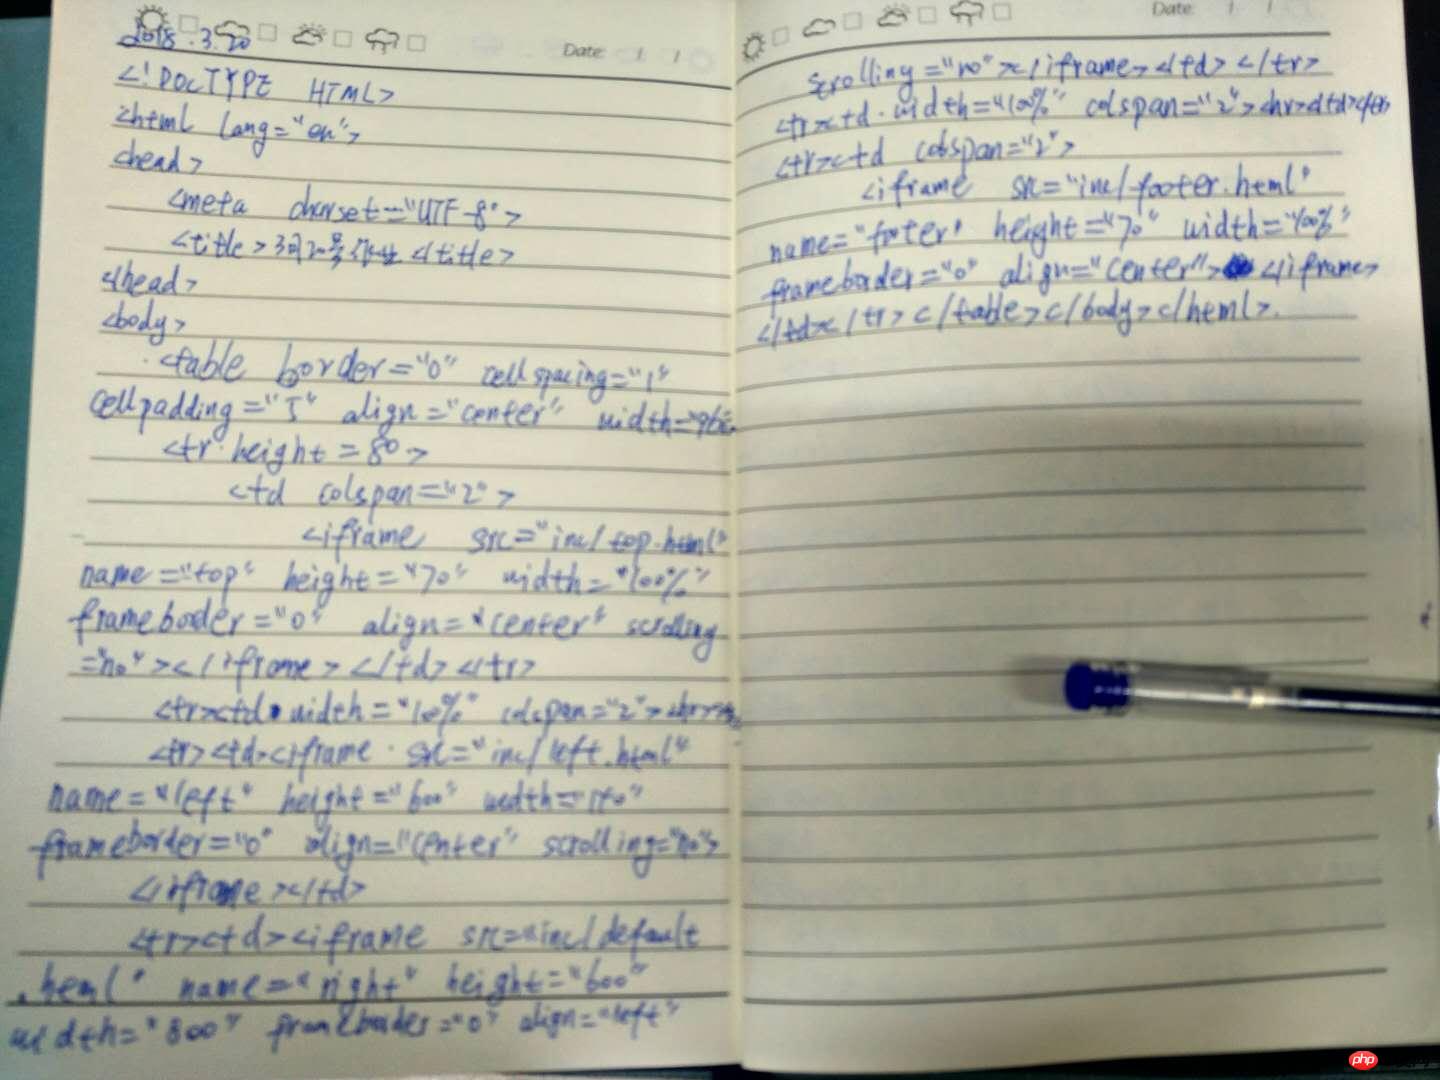 Date: / /
2018.3.20
<!DOCTYPE HTML>
<html lang="en">
<head>
<meta charset="UTF-8">
<title>3月20号作业</title>
</head>
<body>
<table border="0" cellspacing="1"
cellpadding="5" align="center" width=
<tr height=80>
<td colspan="2">
<iframe src="inc/top.html"
name="top" height="70" width="100%"
frameborder="0" align="center" scrolling
="no"></iframe></td></tr>
<tr><td width="100%" colspan="2"><hr>
<tr><td><iframe src="inc/left.html"
name="left" height="600" width=
frameborder="0" align="center" scrolling="no">
</iframe></td>
<tr><td><iframe src="inc/default
.html" name="right" height="600"
width="800" frameborder="0" align="left"
Date: / /
scrolling="no"></iframe></td></tr>
<tr><td width="100%" colspan="2"><hr>
<tr><td colspan="2">
<iframe src="inc/footer.html"
name="footer" height="70" width="100%"
frameborder="0" align="center"> </iframe>
</td></tr></table></body></html>.
php